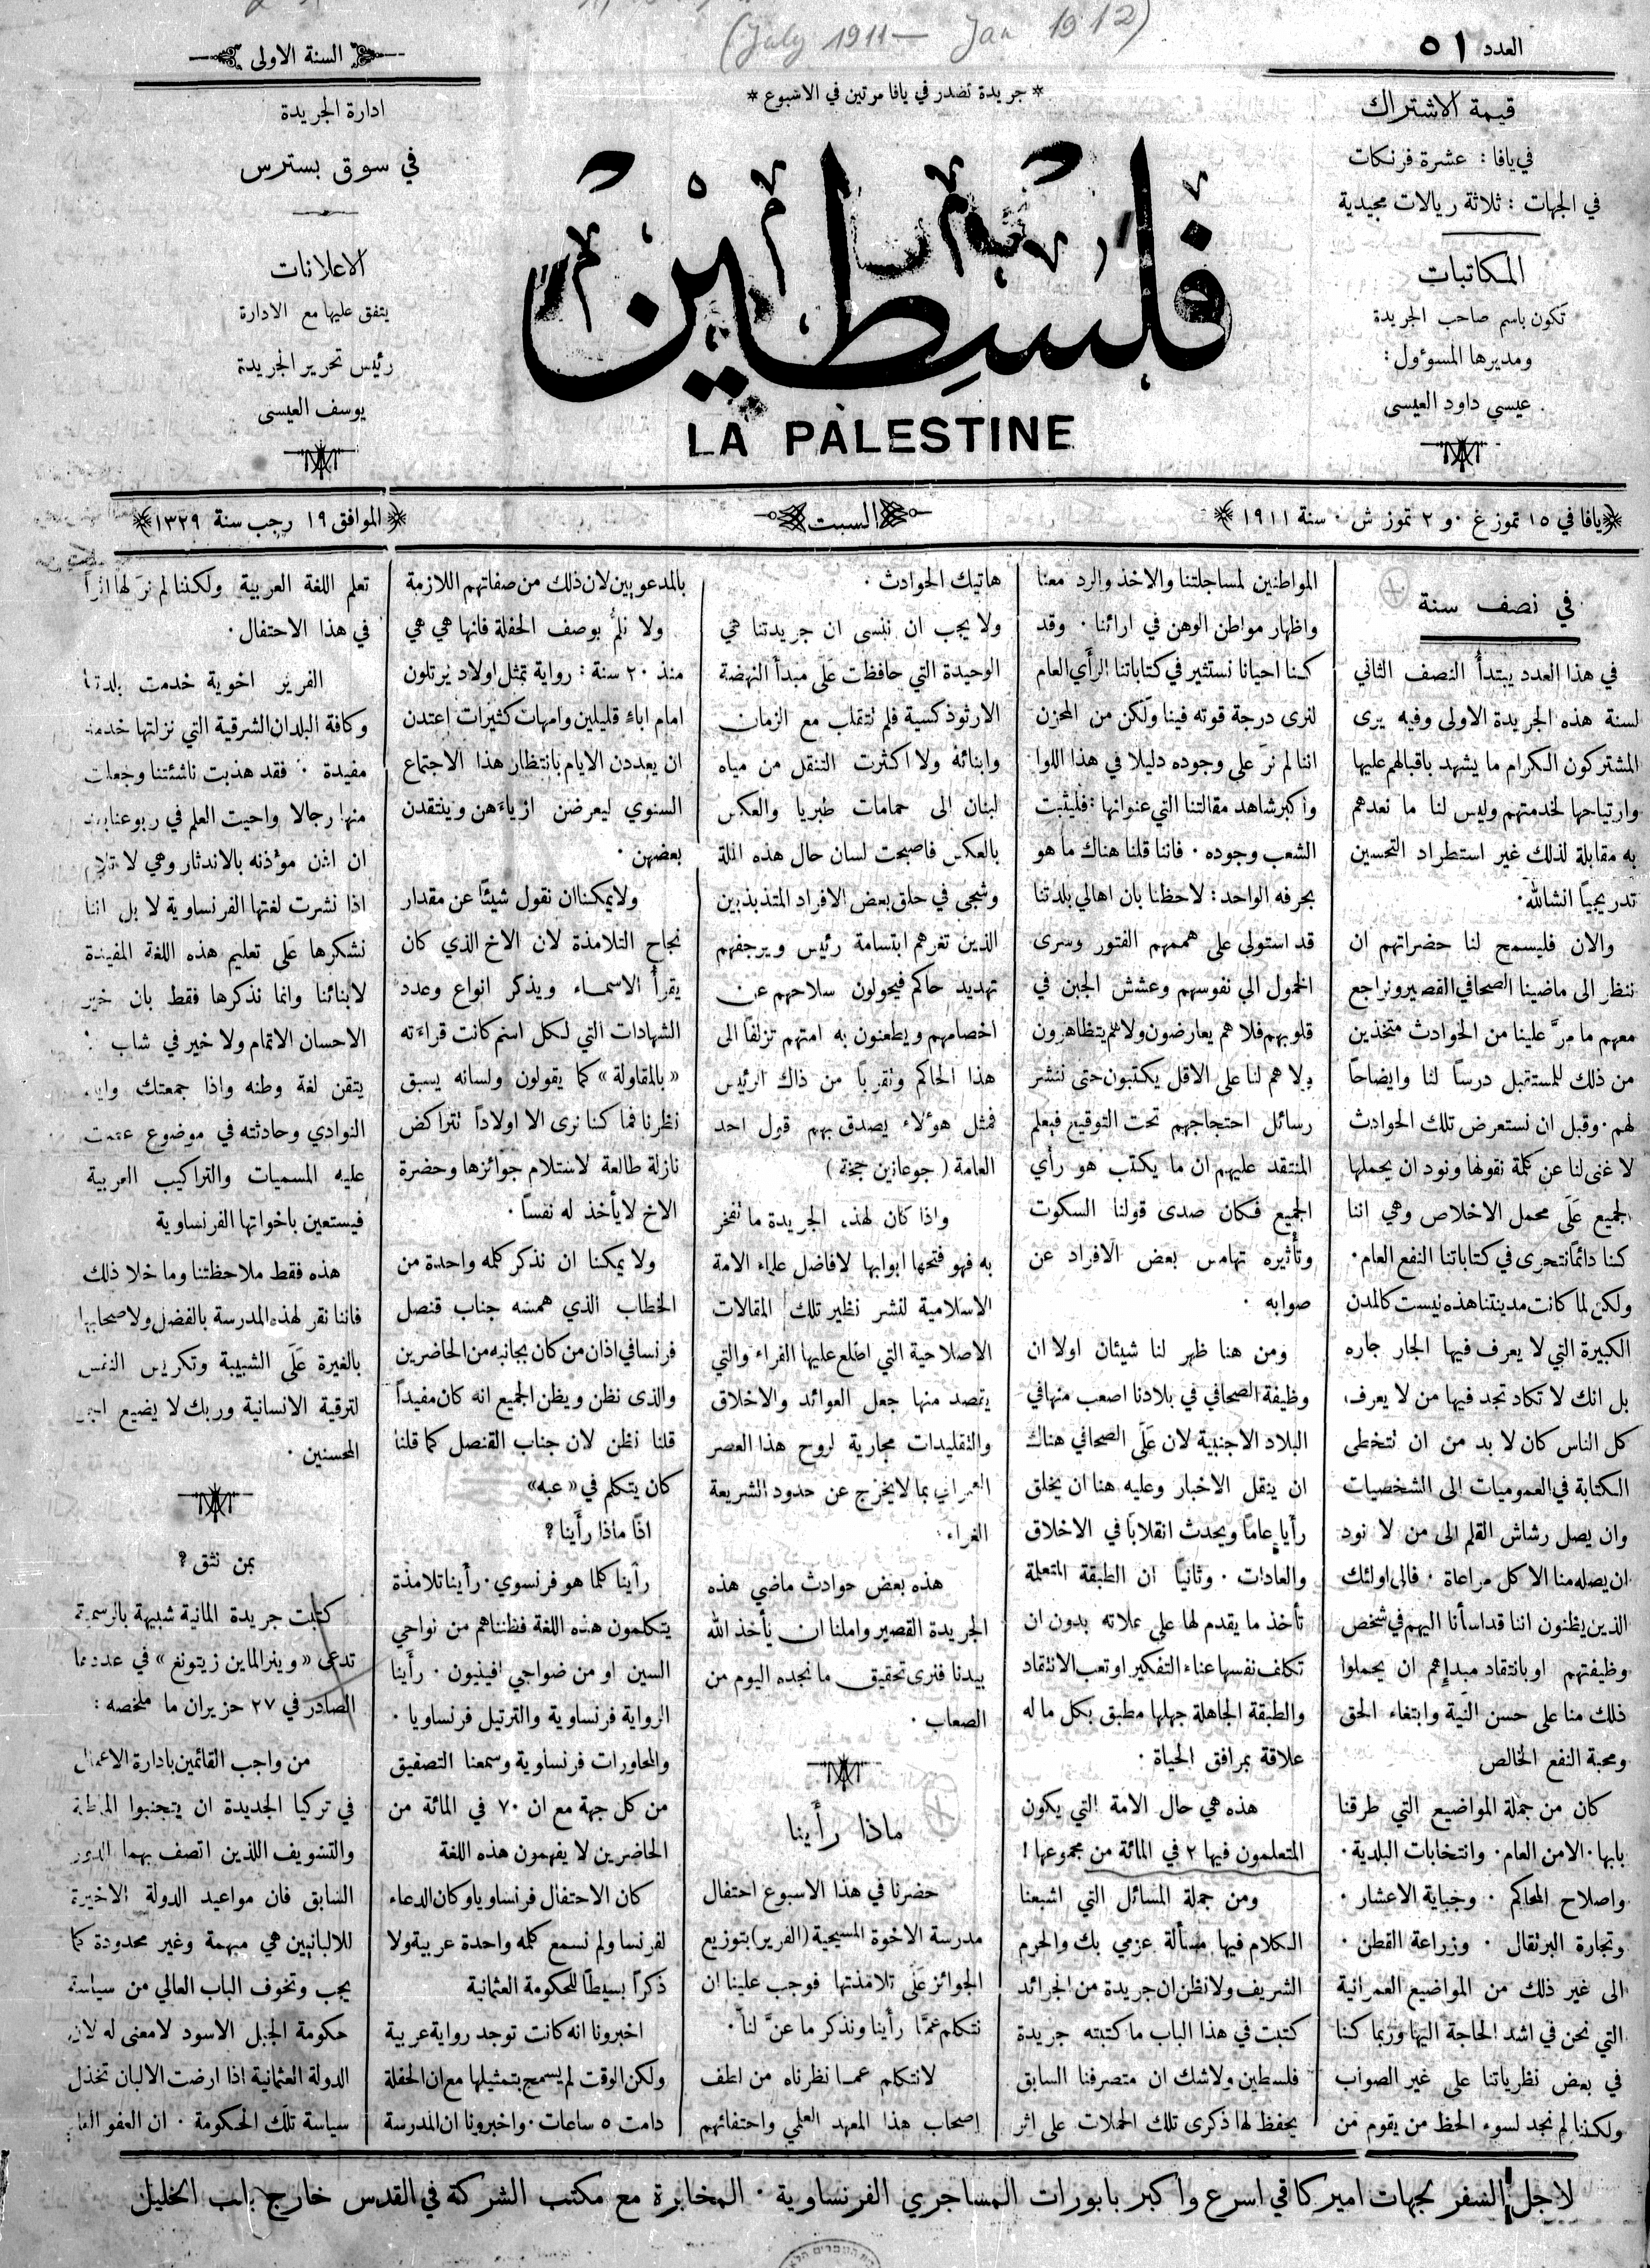 (July 1911 — Jan 1912)
العدد ٥١
السنة الاولى
* جريدة تصدر في يافا مرتين في الاسبوع *
قيمة الاشتراك
في يافا : عشرة فرنكات
في الجهات : ثلاثة ريالات مجيدية
المكاتبات
تكون باسم صاحب الجريدة
ومديرها المسوءول :
عيسي داود العيسى
فلسطين
LA PALESTINE
ادارة الجريدة
في سوق بسترس
الاعلانات
يتفق عليها مع الادارة
رئيس تحرير الجريدة
يوسف العيسى
يافا في ١٥ تموز غ ٠ و ٢ تموز ش ٠ سنة ١٩١١
السبت
الموافق ١٩ رجب سنة ١٣٢٩
في نصف سنة
في هذا العدد يبتدأ النصف الثاني
لسنة هذه الجريدة الاولى وفيه يرى
المشتركون الكرام ما يشهد باقبالهم عليها
وارتياحها لخدمتهم وليس لنا ما نعدهم
به مقابلة لذلك غير استطراد التحسين
تدريجياً انشالله٠
والان فليسمح لنا حضراتهم ان
ننظر الى ماضينا الصحافي القصير ونراجع
معهم ما مرَّ علينا من الحوادث متخذين
من ذلك للمستقبل درساً لنا وايضاحاً
لهم ٠ وقبل ان نستعرض تلك الحوادث
لا غنى لنا عن كلمة نقولها ونود ان يحملها
الجميع عَلَى محمل الاخلاص وهي اننا
كنا دائماً نتحرى في كتاباتنا النفع العام ٠
ولكن لما كانت مدينتنا هذه ليست كالمدن
الكبيرة التي لا يعرف فيها الجار جاره
بل انك لا تكاد تجد فيها من لا يعرف
كل الناس كان لا بد من ان تتخطى
الكتابة في العموميات الى الشخصيات
وان يصل رشاش القلم الى من لا نود
ان يصله منا الا كل مراعاة ٠ فالى اولئك
الذين يظنون اننا قد اسأنا اليهم في شخص
وظيفتهم او بانتقاد مبدإِهم ان يحملوا
ذلك منا على حسن النية وابتغاء الحق
ومحبة النفع الخالص
كان من جملة المواضيع التي طرقنا
بابها ٠ الامن العام ٠ وانتخابات البلدية ٠
واصلاح المحاكم ٠ وجباية الاعشار ٠
وتجارة البرتقال ٠ وزراعة القطن ٠
الى غير ذلك من المواضيع العمرانية
التي نحن في اشد الحاجة اليها وربما كنا
في بعض نظرياتنا على غير الصواب
ولكننا لم نجد لسوء الحظ من يقوم من
المواطنين لمساجلتنا والاخذ والرد معنا
واظهار مواطن الوهن في ارائنا ٠ وقد
كنا احيانا نستثير في كتاباتنا الرأي العام
لنرى درجة قوته فينا ولكن من المحزن
اننا لم نرَ على وجوده دليلا في هذا اللوا
واكبر شاهد مقالتنا التي عنوانها : فليثبت
الشعب وجوده ٠ فاننا قلنا هناك ما هو
بحرفه الواحد : لاحظنا بان اهالي بلدتنا
قد استولى على هممهم الفتور وسرى
الخمول الي نفوسهم وعشش الجبن في
قلوبهم فلا هم يعارضون ولا هم يتظاهرون
ولا هم لنا على الاقل يكتبون حتى ننشر
رسائل احتجاجهم تحت التوقيع فيعلم
المنتقد عليهم ان ما يكتب هو رأي
الجميع فكان صدى قولنا السكوت
وتأثيره تهامس بعض الافراد عن
صوابه ٠
ومن هنا ظهر لنا شيئان اولا ان
وظيفة الصحافي في بلادنا اصعب منها في
البلاد الاجنبية لان عَلَى الصحافي هناك
ان ينقل الاخبار وعليه هنا ان يخلق
رأيا عاماً ويحدث انقلاباً في الاخلاق
والعادات ٠ وثانياً ان الطبقة المتعلمة
تأخذ ما يقدم لها على علاته بدون ان
تكلف نفسها عناء التفكير او تعب الانتقاد
والطبقة الجاهلة جهلها مطبق بكل ما له
علاقة بمرافق الحياة ٠
هذه هي حال الامة التي يكون
المتعلمون فيها ٢ في المائة من مجموعها !
ومن جملة المسائل التي اشبعنا
الكلام فيها مسألة عزمي بك والحرم
الشريف ولا نظن ان جريدة من الجرائد
كتبت في هذا الباب ما كتبته جريدة
فلسطين ولا شك ان متصرفنا السابق
يحفظ لها ذكرى تلك الحملات على اثر
هاتيك الحوادث ٠
ولا يجب ان ننسى ان جريدتنا هي
الوحيدة التي حافظت عَلَى مبدأ النهضة
الارثوذكسية فلم تتقلب مع الزمان
وابنائه ولا اكثرت التنقل من مياه
لبنان الى حمامات طبريا والعكس
بالعكس فاصبحت لسان حال هذه الملة
وشجى في حلق بعض الافراد المتذبذبين
الذين تغرهم ابتسامة رئيس ويرجفهم
تهديد حاكم فيحولون سلاحهم عن
اخصامهم ويطعنون به امتهم تزلفاً الى
هذا الحاكم وتقرباً من ذاك الرئيس
فمثل هؤلاء يصدق بهم قول احد
العامة ( جوعانين جخة )
واذا كان لهذه الجريدة ما تفخر
به فهو فتحها ابوابها لافاضل علماء الامة
الاسلامية لنشر نظير تلك المقالات
الاصلاحية التي اطلع عليها القراء والتي
يقصد منها جعل العوائد والاخلاق
والتقليدات مجارية لروح هذا العصر
العمراني بما لا يخرج عن حدود الشريعة
الغراء ٠
هذه بعض حوادث ماضي هذه
الجريدة القصير واملنا ان يأخذ الله
بيدنا فنرى تحقيق ما نجده اليوم من
الصعاب ٠
ماذا رأينا
حضرنا في هذا الاسبوع احتفال
مدرسة الاخوة المسيحية (الفرير) بتوزيع
الجوائز عَلَى تلامذتها فوجب علينا ان
نتكلم عمَّا رأينا ونذكر ما عنَّ لنا ٠
لا نتكلم عما نظرناه من لطف
اصحاب هذا المعهد العلمي واحتفائهم
بالمدعويين لان ذلك من صفاتهم اللازمة
ولا نلمُّ بوصف الحفلة فانها هي هي
منذ ٢٠ سنة : رواية تمثل اولاد يرتلون
امام اباءٍ قليلين وامهات كثيرات اعتدن
ان يعددن الايام بانتظار هذا الاجتماع
السنوي ليعرضن ازياءَهن وينتقدن
بعضهن ٠
ولا يمكننا ان نقول شيئاً عن مقدار
نجاح التلامذة لان الاخ الذي كان
يقرأ الاسماء ويذكر انواع وعدد
الشهادات التي لكل اسم كانت قراءَته
«بالمقاولة» كما يقولون ولسانه يسبق
نظرنا فما كنا نرى الا اولاداً تتراكض
نازلة طالعة لاستلام جوائزها وحضرة
الاخ لا يأخذ له نفساً ٠
ولا يمكنا ان نذكر كلمه واحدة من
الخطاب الذي همسه جناب قنصل
فرنسا في اذان من كان بجانبه من الحاضرين
والذى نظن ويظن الجميع انه كان مفيداً
قلنا نظن لان جناب القنصل كما قلنا
كان يتكلم في «عبه»
اذًا ماذا رأينا ؟
رأينا كلما هو فرنسوي ٠ رأينا تلامذة
يتكلمون هذه اللغة فظنناهم من نواحي
السين او من ضواحي افينيون ٠ رأينا
الرواية فرنساوية والترتيل فرنساويا ٠
والمحاورات فرنساوية وسمعنا التصفيق
من كل جهة مع ان ٧٠ في المائة من
الحاضرين لا يفهمون هذه اللغة
كان الاحتفال فرنساويا وكان الدعاء
لفرنسا ولم نسمع كلمه واحدة عربية ولا
ذكراً بسيطاً للحكومة العثمانية
اخبرونا انه كانت توجد رواية عربية
ولكن الوقت لم يسمح بتمثيلها مع ان الحفلة
دامت ٥ ساعات ٠ واخبرونا ان المدرسة
تعلم اللغة العربية ولكننا لم نرَ لها اثراً
في هذا الاحتفال ٠
الفرير اخوية خدمت بلدتنا
وكافة البلدان الشرقية التي نزلتها خدمة
مفيدة : فقد هذبت ناشئتنا وجعلت
منها رجالا واحيت العلم في ربوعنا بعد
ان اذن موءذنه بالاندثار وهي لا تلام
اذا نشرت لغتها الفرنساوية لا بل اننا
نشكرها عَلَى تعليم هذه اللغة المفيدة
لابنائنا وانما نذكرها فقط بان خير
الاحسان الاتمام ولا خير في شاب :
يتقن لغة وطنه واذا جمعتك واياه
النوادي وحادثته في موضوع عصت
عليه المسميات والتراكيب العربية
فيستعين باخواتها الفرنساوية
هذه فقط ملاحظتنا وما خلا ذلك
فاننا نقر لهذه المدرسة بالفضل ولاصحابها
بالغيرة عَلَى الشبيبة وتكريس النفس
لترقية الانسانية وربك لا يضيع اجر
المحسنين ٠
بمن نثق ؟
كتبت جريدة المانية شبيهة بالرسمية
تدعى «وينر الماين زيتونغ» في عددها
الصادر في ٢٧ حزيران ما ملخصه :
من واجب القائمين بادارة الاعمال
في تركيا الجديدة ان يتجنبوا المطلة
والتسويف اللذين اتصف بهما الدور
السابق فان مواعيد الدولة الاخيرة
للالبانيين هي مبهمة وغير محدودة كما
يجب وتخوف الباب العالي من سياسة
حكومة الجبل الاسود لا معنى له لان
الدولة العثمانية اذا ارضت الالبان تخذل
سياسة تلك الحكومة ٠ ان العفو العام
لاجل السفر لجهات اميركا في اسرع واكبر بابورات المساجري الفرنساوية ٠ المخابرة مع مكتب الشركة في القدس خارج باب الخليل